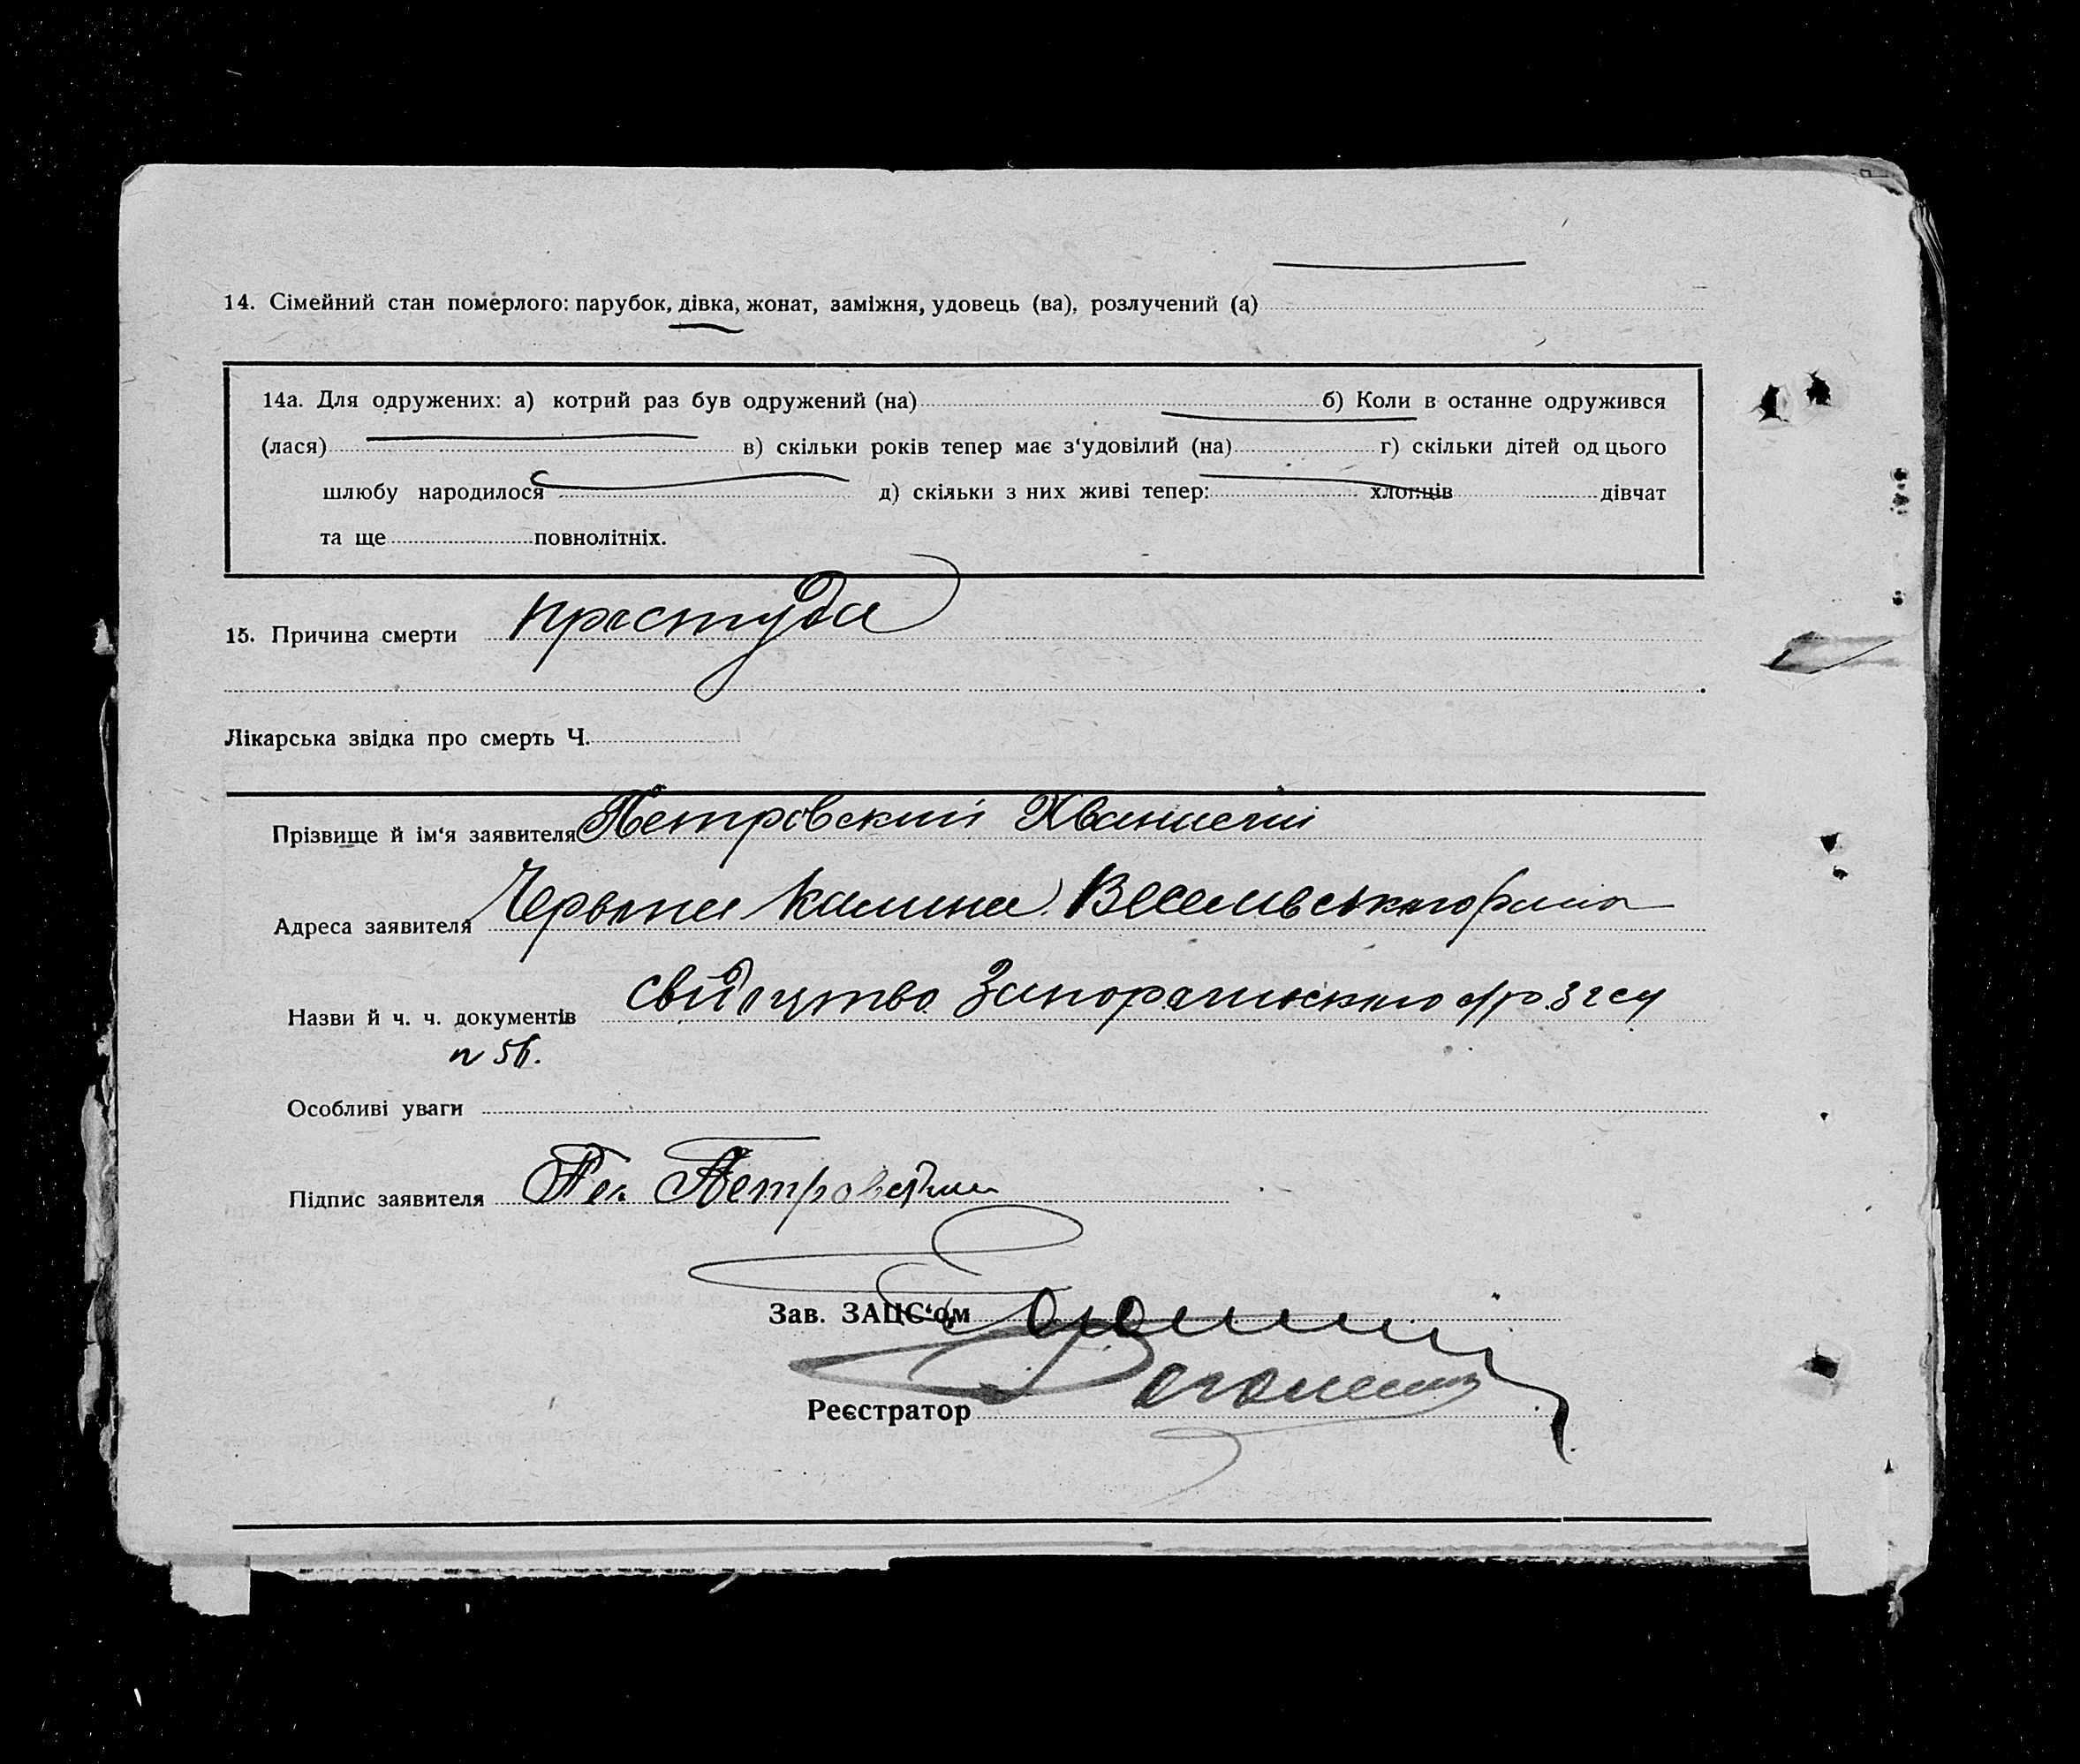 14. Сімейний стан померлого: парубок, дівка, жонат, заміжня, удовець (ва), розлучений (а)
14а. Для одружених: а) котрий раз був одружений (на) б) Коли в останне одружився
(лася) в) скільки років тепер має з‘удовілий (на) г) скільки дітей од цього
шлюбу народилося д) скільки з них живі тепер: хлопців дівчат
та ще повнолітніх.
15. Причина смерти простуда
Лікарська звідка про смерть Ч.
Прізвище й ім‘я заявителя Петровский
Адреса заявителя Червона Калина Веселивського
Назви й ч. ч. документів свидоцтво
Особливі уваги
Підпис заявителя
Зав. ЗАЦС‘ом
Реєстратор